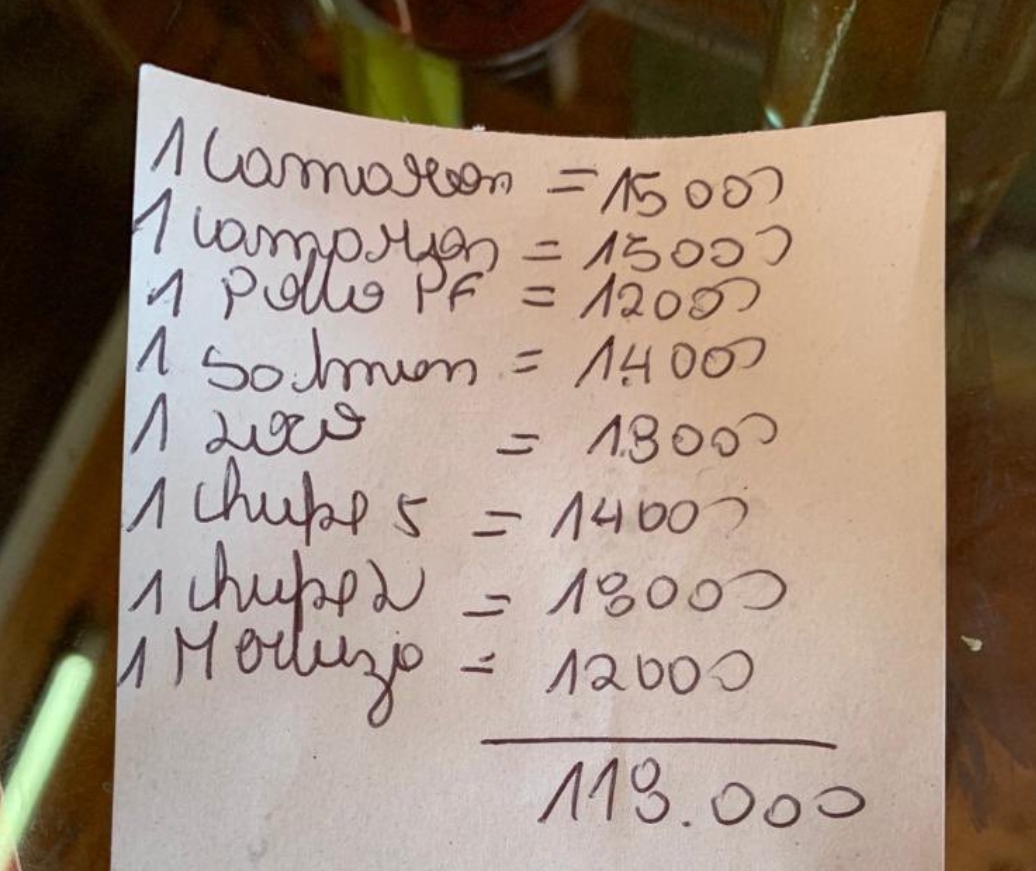 1 Camaron = 15000
1 Camaron = 15000
1 Pollo PF = 12000
1 Salmon = 14000
1 Loco = 18000
1 chupe S = 14000
1 chupe L = 18000
1 Merluza = 12000
118.000